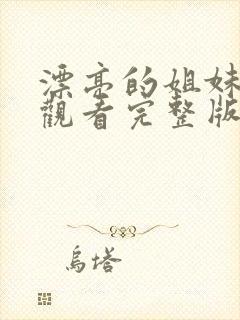 漂亮的姐妹
觀看完整版
烏塔